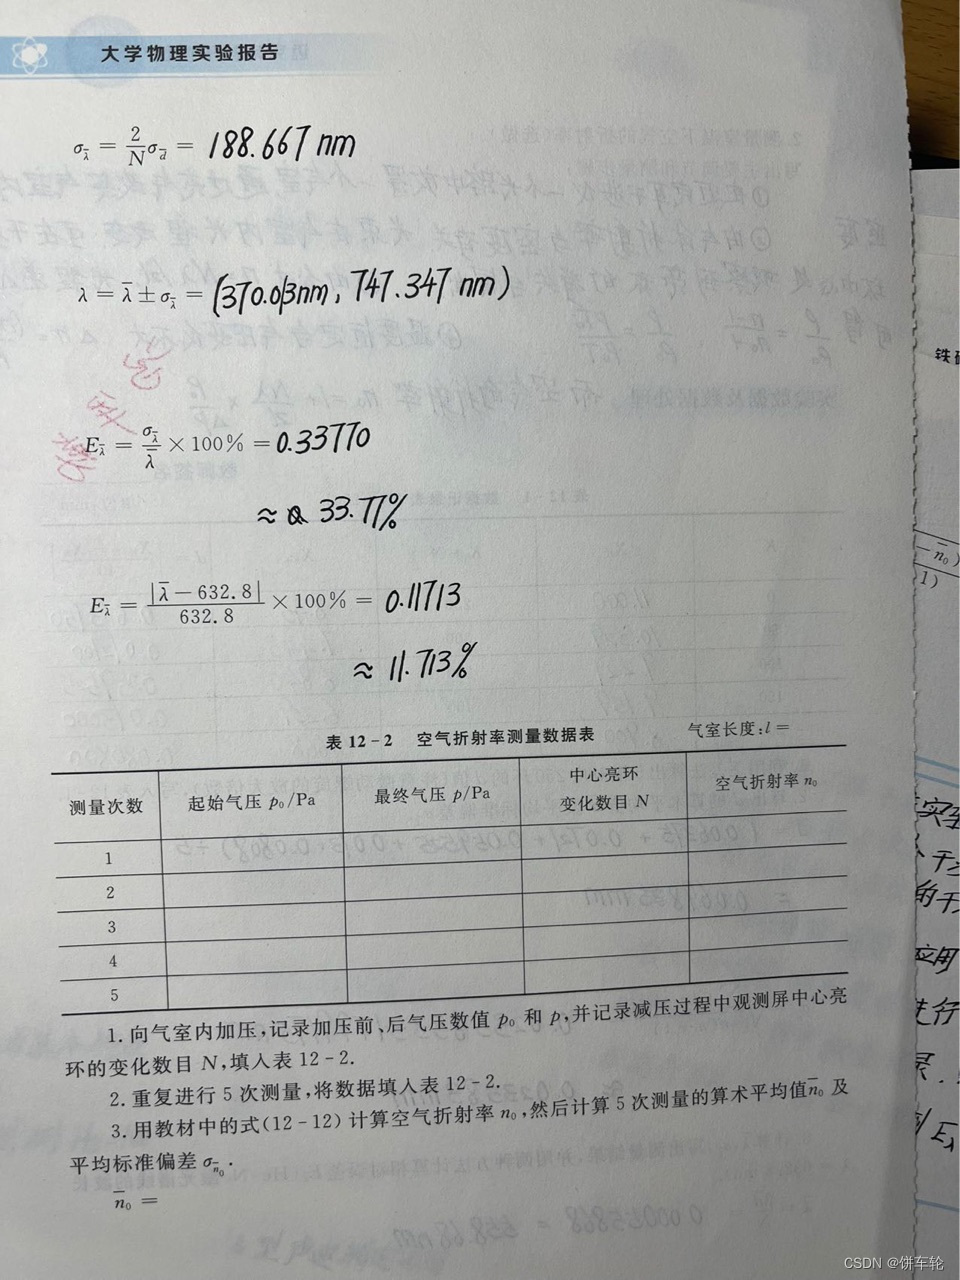 大学物理实验报告
σ_λ̄ = 2/N σ_d̄ = 188.667 nm
λ = λ̄ ± σ_λ̄ = (370.013nm, 747.347 nm)
E_λ̄ = σ_λ̄/λ̄ × 100% = 0.33770
≈ 33.77%
E_λ̄ = |λ̄ - 632.8|/632.8 × 100% = 0.11713
≈ 11.713%
表 12-2 空气折射率测量数据表 气室长度:l =
测量次数 起始气压 p₀/Pa 最终气压 p/Pa 中心亮环变化数目 N 空气折射率 n₀
1
2
3
4
5
1. 向气室内加压,记录加压前、后气压数值 p₀ 和 p,并记录减压过程中观测屏中心亮
环的变化数目 N,填入表 12-2.
2. 重复进行 5 次测量,将数据填入表 12-2.
3. 用教材中的式(12-12)计算空气折射率 n₀,然后计算 5 次测量的算术平均值 n̄₀ 及
平均标准偏差 σ_n̄₀.
n̄₀ =
铁
- n̄₀)
1)
实
干
的干
应用
进行
E_λ
CSDN @饼车轮